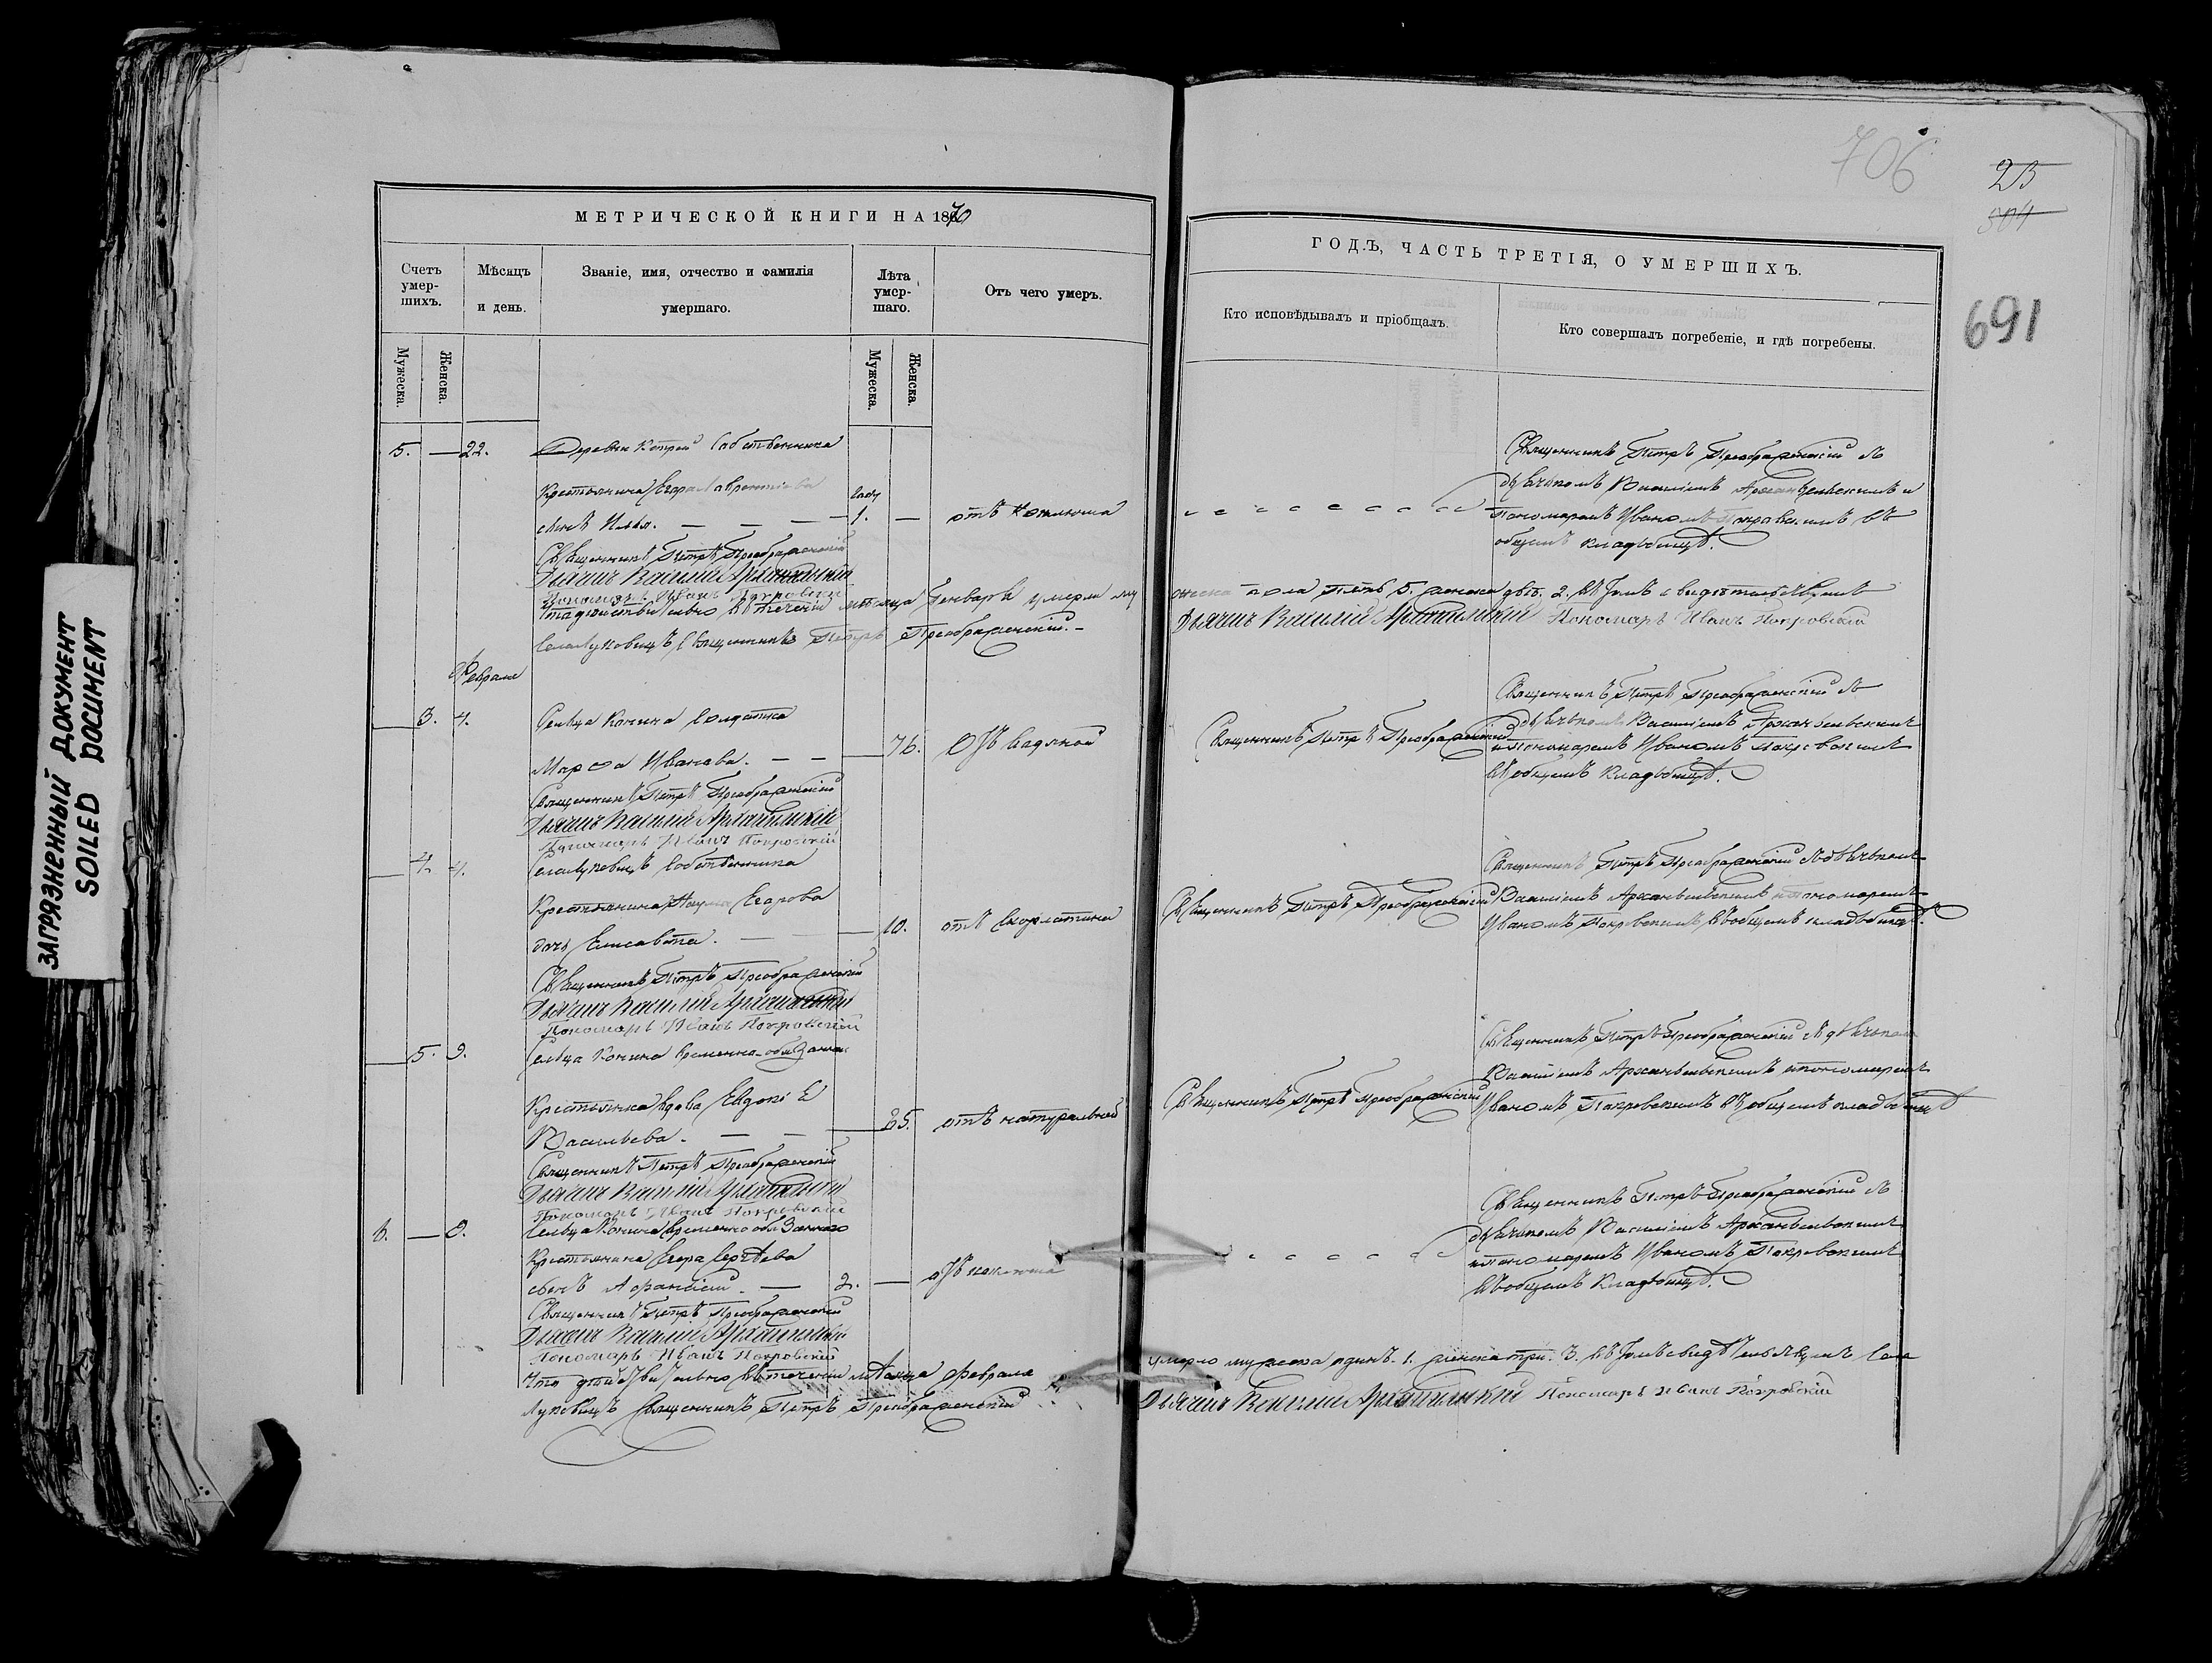 706
23
504
691
ЗАГРЯЗНЕННЫЙ ДОКУМЕНТ
SOILED DOCUMENT
МЕТРИЧЕСКОЙ КНИГИ НА 1870
Счетъ умер-шихъ.
Мѣсяцъ и день.
Званіе, имя, отчество и фамилія умершаго.
Лѣта умер-шаго.
Отъ чего умеръ.
Мужеска.
Женска.
Мужеска.
Женска.
5. — 22.
Деревни Собственника
Крестьянина Егора Лаврентіева
сынъ Илья. — — — 1. — отъ кашлюша
Священникъ Петръ Преображенскій
Дьячекъ Василій Архангельскій
Пономарь Иванъ Покровскій
Что дѣйствительно въ теченіи мѣсяца Генваря умерло му
Села Луковицъ Священникъ Петръ Преображенскій.
Февраля
3. 4. Сельца Конина Солдатка
Марѳа Иванова. — — 76. Отъ водяной
Священникъ Петръ Преображенскій
Дьячекъ Василій Архангельскій
Пономарь Иванъ Покровскій
4. 4. Села Луковицъ Собственника
Крестьянина Наума Егорова
дочь Елисавета. — — 10. отъ скорлатины
Священникъ Петръ Преображенскій
Дьячекъ Василій Архангельскій
Пономарь Иванъ Покровскій
5. 9. Сельца Конина временно-обязанная
Крестьянка вдова Евдокія
Васильева. — — 65. отъ натуральной
Священникъ Петръ Преображенскій
Дьячекъ Василій Архангельскій
Пономарь Иванъ Покровскій
6. — 9. Сельца Конина временно обязаннаго
Крестьянина Егора Сергѣева
сынъ Аѳанасій. — 2. — отъ кашлюша
Священникъ Петръ Преображенскій
Дьячекъ Василій Архангельскій
Пономарь Иванъ Покровскій
Что дѣйствительно въ теченіи мѣсяца Февраля
Луковицъ Священникъ Петръ Преображенскій
ГОДЪ, ЧАСТЬ ТРЕТІЯ, О УМЕРШИХЪ.
Кто исповѣдывалъ и пріобщалъ.
Кто совершалъ погребеніе, и гдѣ погребены.
Священникъ Петръ Преображенскій съ
дьячкомъ Василіемъ Архангельскимъ и
Пономаремъ Иваномъ Покровскимъ въ
общемъ кладбищѣ.
жеска пола пять 5. женска двѣ. 2. въ томъ свидѣтельствуемъ
Дьячекъ Василій Архангельскій Пономарь Иванъ Покровскій
Священникъ Петръ Преображенскій
Священникъ Петръ Преображенскій съ
дьячкомъ Василіемъ Архангельскимъ
и пономаремъ Иваномъ Покровскимъ
въ общемъ кладбищѣ.
Священникъ Петръ Преображенскій
Священникъ Петръ Преображенскій съ дьячкомъ
Василіемъ Архангельскимъ и пономаремъ
Иваномъ Покровскимъ въ общемъ кладбищѣ.
Священникъ Петръ Преображенскій
Священникъ Петръ Преображенскій съ дьячкомъ
Василіемъ Архангельскимъ и пономаремъ
Иваномъ Покровскимъ въ общемъ кладбищѣ
Священникъ Петръ Преображенскій съ
дьячкомъ Василіемъ Архангельскимъ
и пономаремъ Иваномъ Покровскимъ
въ общемъ кладбищѣ.
умерло мужеска одинъ. 1. женска три. 3. въ томъ свидѣтельствуемъ Села
Дьячекъ Василій Архангельскій Пономарь Иванъ Покровскій